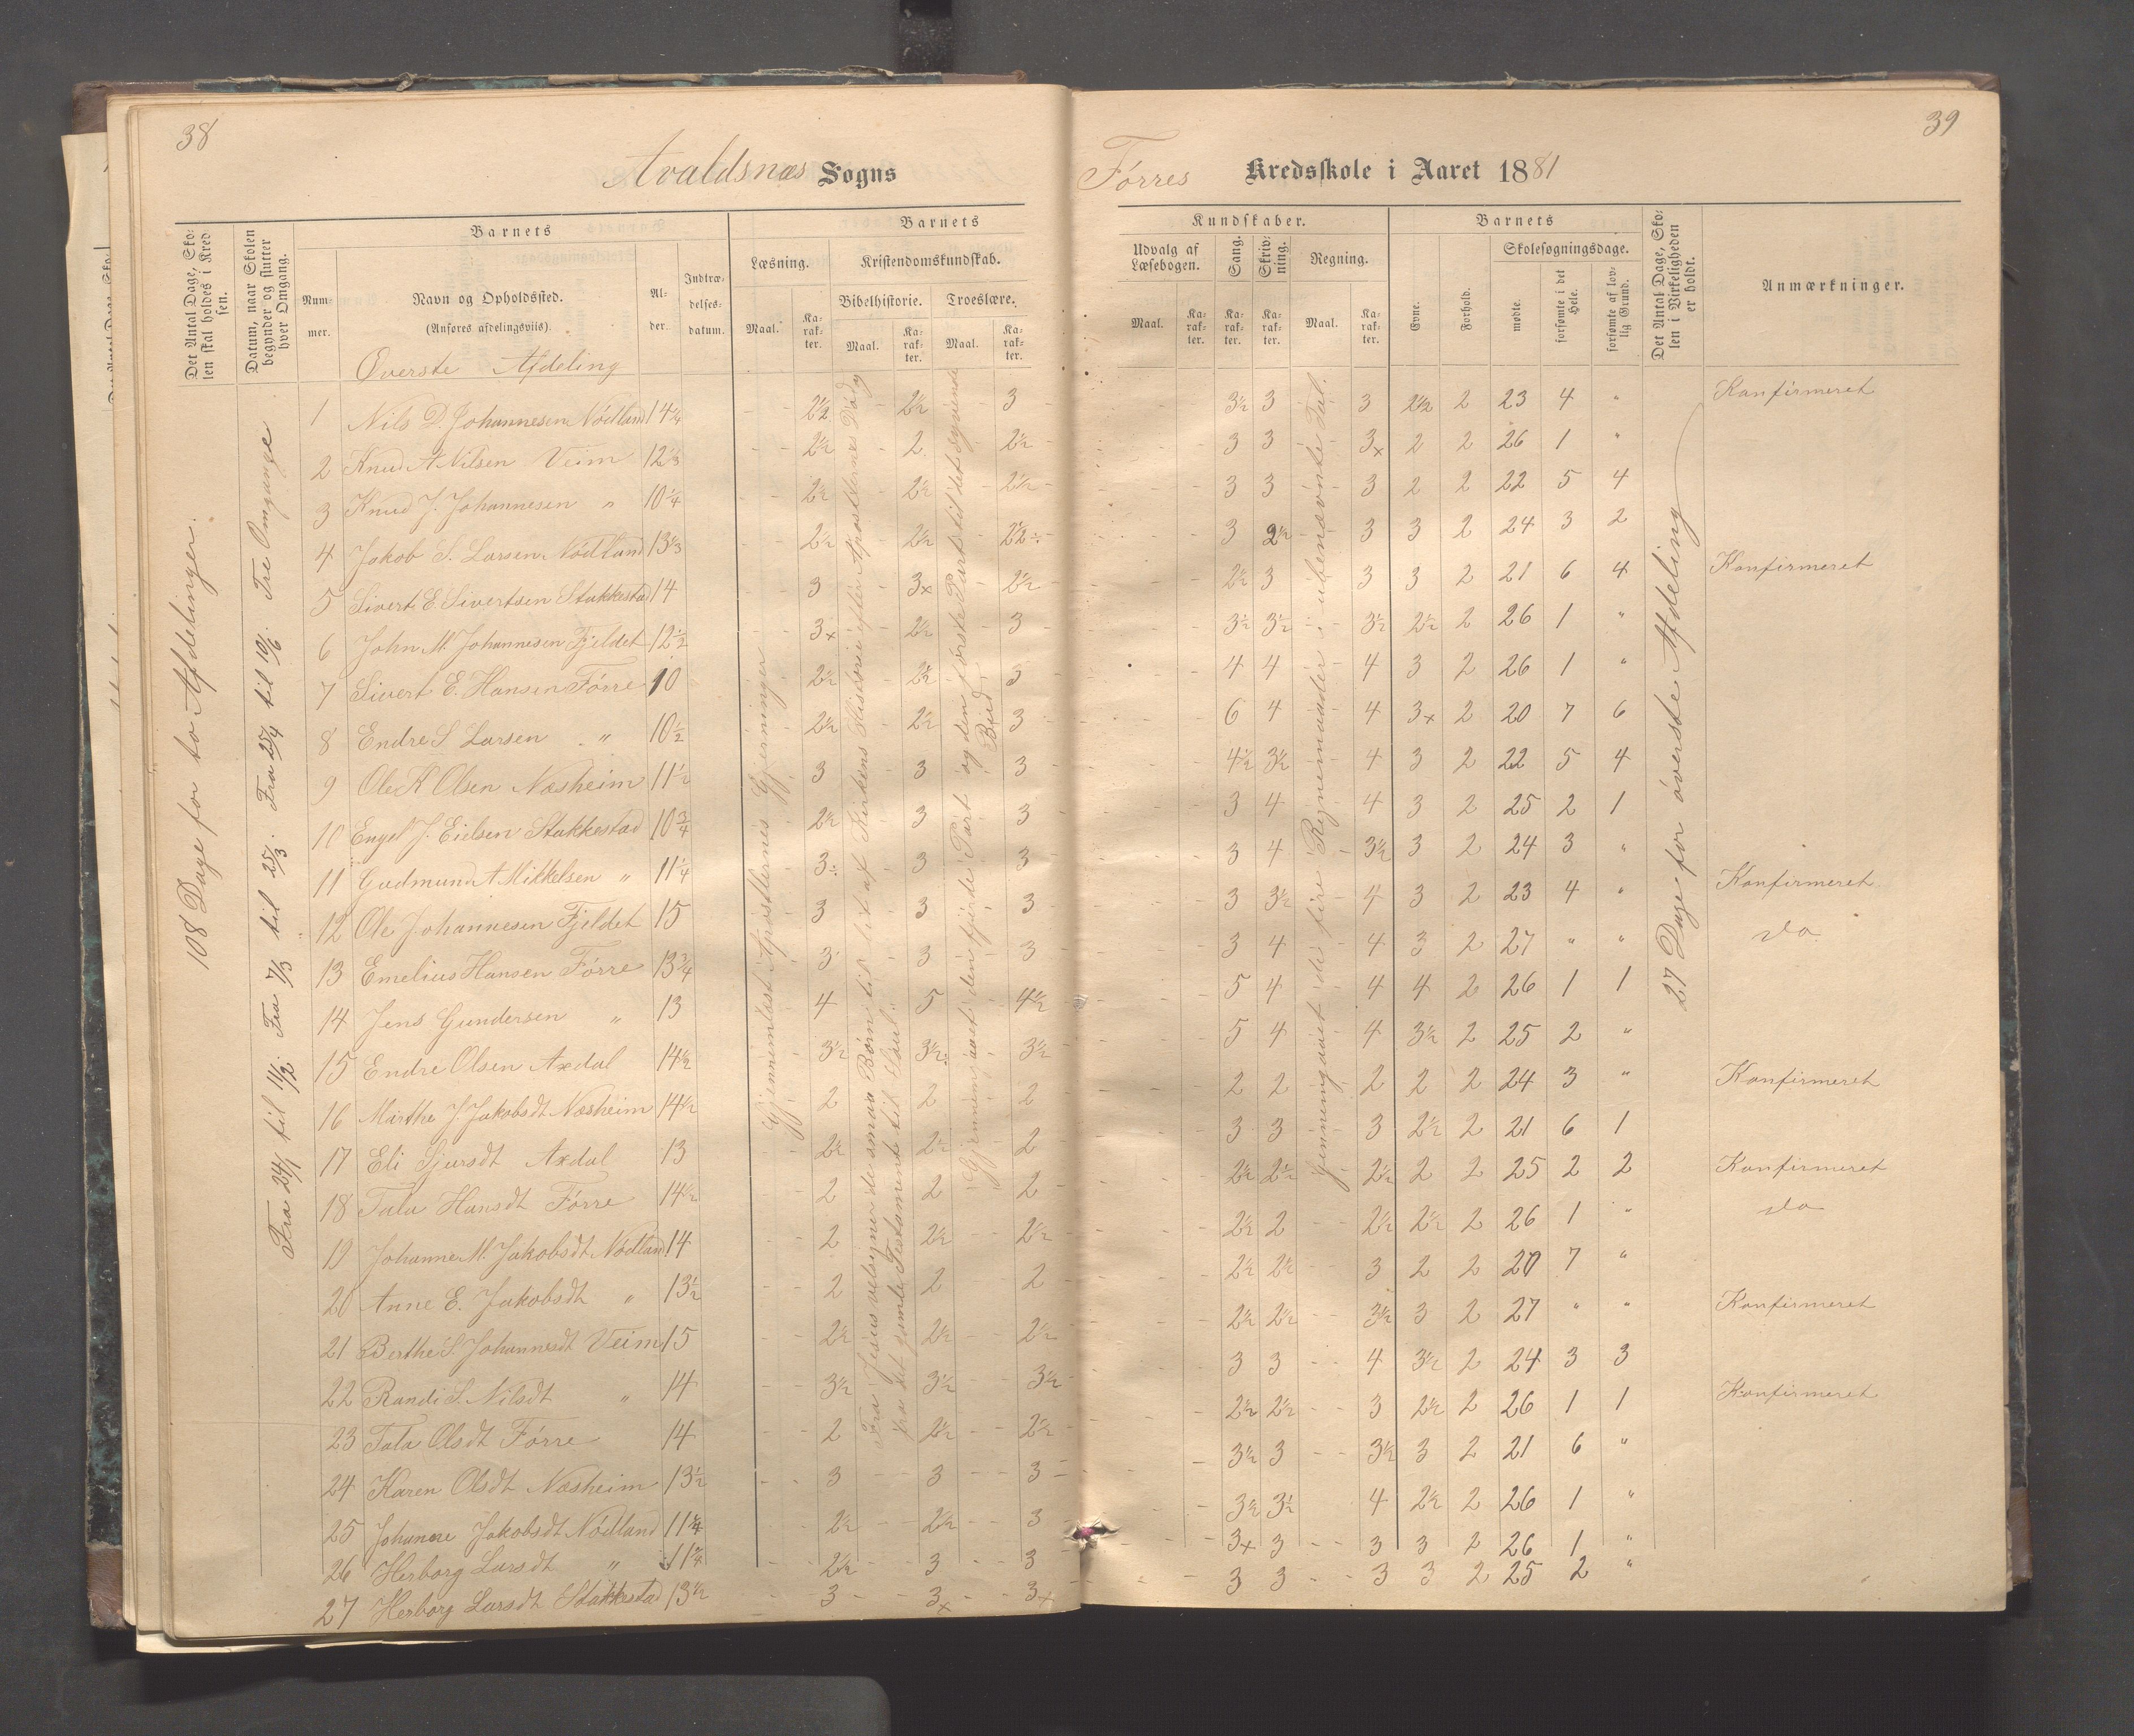 38
Avaldsnæs Sogns
Det Antal Dage, Sko-
len skal holdes i Kred
sen.
Datum, naar Skolen
begynder og slutter
hver Omgang.
Barnets
Num-
mer.
Navn og Opholdssted.
(Anføres afdelingsviis).
Al-
der.
Indtræ-
delses-
datum.
Barnets
Læsning.
Maal.
Ka-
rak-
ter.
Kristendomskundskab.
Bibelhistorie.
Maal.
Ka-
rak-
ter.
Troeslære.
Maal.
Ka-
rak-
ter.
Øverste Afdeling
108 Dage for to Afdelinger.
Fra 24/1 til 11/2. Fra 7/3 til 25/3. Fra 25/4 til 10/6. Tre Omgange
Gjennemlæst Apostlernes Gjerninger
Fra Jesus velsigner de smaa Børn til lit af Kirkens Historie efter Apostlernes Død og
fra det gamle Testamente til Saul.
Gjennemgaaet den fjerde Part og den første Part til det syvende
Bud.
1 Nils D. Johannesen Nødland 14 1/4 2½ 2½ 3
2 Knud A Nilsen Veim 12 1/3 2½ 2 2½
3 Knud J. Johannesen " 10 1/4 2½ 2½ 2½
4 Jakob S. Larsen Nødland 13 1/3 2½ 2½ 2½÷
5 Sivert E. Sivertsen Stakkestad 14 3 3x 2½
6 John M. Johannesen Fjeldet 12½ 3x 2½ 3
7 Sivert E. Hansen Førre 10 2½ 2½ 3
8 Endre S Larsen " 10½ 2½ 2½ 3
9 Ole K Olsen Næsheim 11½ 3 3 3
10 Engel J. Eielsen Stakkestad 10¾ 2½ 3 3
11 Gudmund A Mikkelsen " 11¼ 3÷ 3 3
12 Ole Johannesen Fjeldet 15 3 3 3
13 Emelius Hansen Førre 13¾ 3 3 3
14 Jens Gundersen " 13 4 5 4½
15 Endre Olsen Axdal 14½ 3½ 3½ 3½
16 Marthe J. Jakobsdt Næsheim 14½ 2 2 2
17 Eli Sjursdt Axdal 13 2½ 2½ 2
18 Tala Hansdt Førre 14½ 2 2 2
19 Johanne M. Jakobsdt Nødland 14 2 2½ 2½
20 Anne E. Jakobsdt " 13½ 2 2 2
21 Berthe S. Johannesdt Veim 15 2½ 2½ 2½
22 Randi S. Nilsdt " 14 3½ 3½ 3½
23 Tala Olsdt Førre 14 2 2½ 2½
24 Karen Olsdt Næsheim 13½ 3 3 3
25 Johanne Jakobsdt Nødland 11¼ 2½ 2½ 3
26 Herborg Larsdt " 11¼ 2½ 3 3
27 Herborg Larsdt Stakkestad 13½ 3 3x 3x
39
Førres Kredsskole i Aaret 1881
Kundskaber.
Udvalg af
Læsebogen.
Maal.
Ka-
rak-
ter.
Sang.
Ka-
rak-
ter.
Skriv-
ning.
Ka-
rak-
ter.
Regning.
Maal.
Ka-
rak-
ter.
Barnets
Evne.
Forhold.
Skolesøgningsdage.
mødte.
forsømte i det
Hele.
forsømte af lov-
lig Grund.
Det Antal Dage, Sko-
len i Virkeligheden
er holdt.
Anmærkninger.
Gjennemgaaet de fire Regnemaader i ubenævnte Tal.
27 Dage for øverste Afdeling
3½ 3 3 2½ 2 23 4 " Konfirmeret
3 3 3x 2 2 26 1 "
3 3 3 2 2 22 5 4
3 2½ 3 3 2 24 3 2
2½ 3 3 3 2 21 6 4 Konfirmeret
3½ 3½ 3½ 2½ 2 26 1 "
4 4 4 3 2 26 1 "
6 4 4 3x 2 20 7 6
4½ 3½ 4 3 2 22 5 4
3 4 4 3 2 25 2 1
3 4 3½ 3 2 24 3 "
3 3½ 4 3 2 23 4 " Konfirmeret
3 4 4 3 2 27 " " do
5 4 4 4 2 26 1 1
5 4 4 3½ 2 25 2 "
2 2 2 2 2 24 3 " Konfirmeret
3 3 3 2½ 2 21 6 1
2½ 2½ 2½ 2 2 25 2 2 Konfirmeret
2½ 2 2½ 2½ 2 26 1 " do
2½ 2½ 3 2 2 20 7 "
2½ 2½ 3½ 3 2 27 " " Konfirmeret
3 3 4 3½ 2 24 3 3
2½ 2½ 3 2½ 2 26 1 1 Konfirmeret
3½ 3 3½ 3 2 21 6 "
3½ 3½ 4 2½ 2 26 1 "
3x 3 3 3 2 26 1 "
3 3 3 3 2 25 2 "